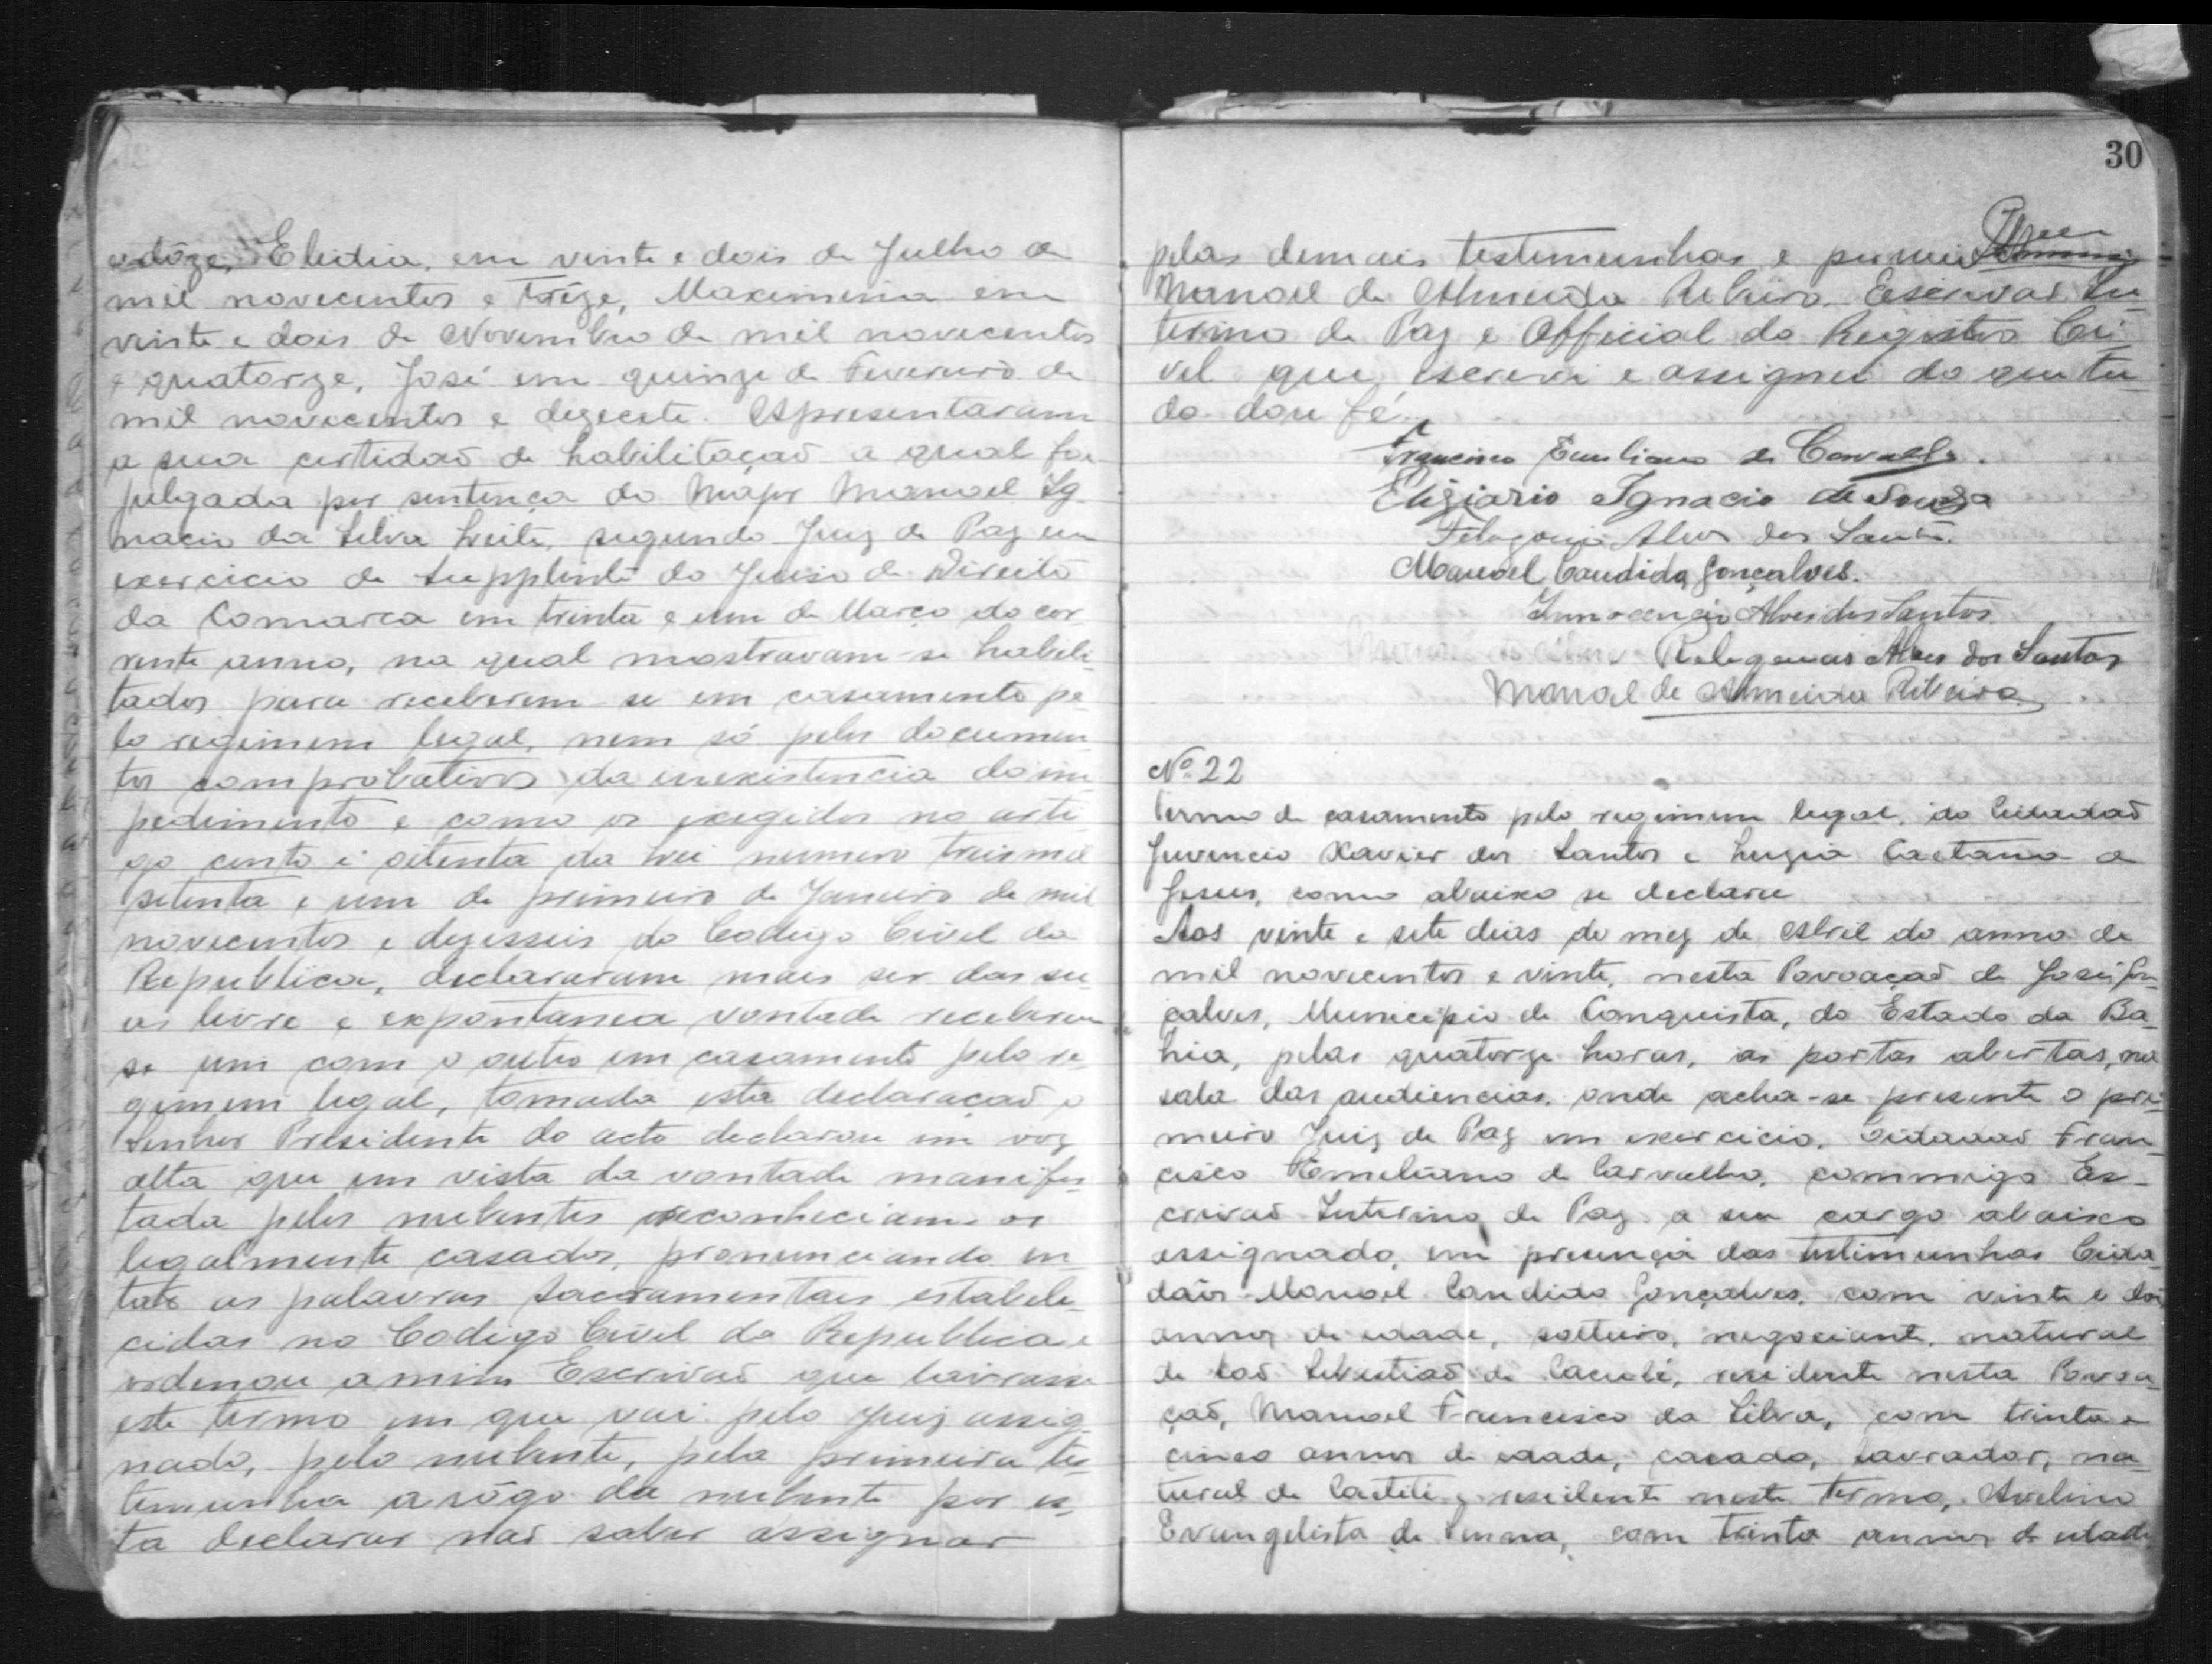 e dôze, Elidia, em vinte e dois de Julho de
mil novecentos e trêze, Maximinia em
vinte e dois de Novembro de mil novecentos
e quatorze, José em quinze de Fevereiro de
mil novecentos e dezecete. Apresentaram
a sua certidaõ de habilitaçaõ a qual foi
julgada por sentença do Major Manoel Ig
nacio da Silva Leite, segundo Juiz de Paz em
exercicio de Supplente do Juiso de Direito
da Comarca em trinta e um de Março do cor
rente anno, na qual mostravam-se habili
tados para receberem se em casamento pe
lo regimem legal, nem só pelos documen
tos comprobativos da inexistencia do im
pedimento e como os exegidos no arti
go cento e oitenta da Lei numero treis mil
setenta e um de primeiro de Janeiro de mil
novecentos e dezesseis do Codigo Civel da
Republica, declararam mais ser das su
as livre e expontanea vontade receberem
se um com o outro em casamento pelo re
gimem legal, tomada esta declaraçaõ o
Senhor Presidente do acto declarou em voz
alta que em vista da vontade manifes
tada pelos nubentes reconheciam-os
legalmente casados, pronunciando en
taõ as palavras sacramentaes estabele
cidas no Codigo Civel da Republica e
ordenou a mim Escrivaõ que lavrasse
este termo em que vai pelo Juiz assig
nado, pelo nubente, pela primeira tes
temunha a rôgo da nubente por es
ta declarar naõ saber assignar
30
pelas demais testemunhas e por mim
Manoel de Almeida Ribeiro. Escrivaõ In
terino de Paz e Official do Registro Ci
vel que escrevi e assignei do que tu
do dou fé.
Francisco Emiliano de Carvalho.
Eligiario Ignacio de Souza
Alves dos Santos.
Manoel Candido Gonçalves.
Innocencio Alves dos Santos
Alves dos Santos
Manoel de Almeida Ribeiro
Nº 22
Termo de casamento pelo regimem legal, do Cidadaõ
Juvencio Xavier dos Santos e Luzia Caetana de
Jesus, como abaixo se declara
Aos vinte e sete dias do mez de Abril do anno de
mil novecentos e vinte, nesta Povoaçaõ de José Gon
çalves, Municipio de Conquista, do Estado da Ba
hia, pelas quatorze horas, as portas abertas, na
sala das audiencias, onde acha-se presente o pri
meiro Juiz de Paz em exercicio, Cidadaõ Fran
cisco Emiliano de Carvalho, commigo Es-
crivaõ Interino de Paz a seu cargo abaixo
assignado, em presença das testimunhas Cida
daõs Manoel Candido Gonçalves, com vinte e dois
annos de edade, solteiro, negociante, natural
de Saõ Sebastiaõ de Caculé, residente nesta Povoa
çaõ, Manoel Francisco da Silva, com trinta e
cinco annos de edade, casado, lavrador, na
tural de Caeteté, residente neste termo, Avelino
Evangelista de Senna, com trinta annos de edade